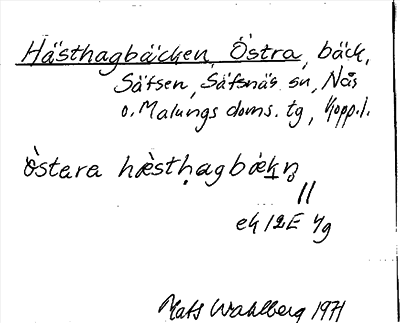 Hästhagbäcken, Östra, bäck,
Säfsen, Säfsnäs sn, Nås
o. Malungs doms. tg, Kopp.l.
östara hæsthagbækn̥
ek 12E 4g
Mats Wahlberg 1971